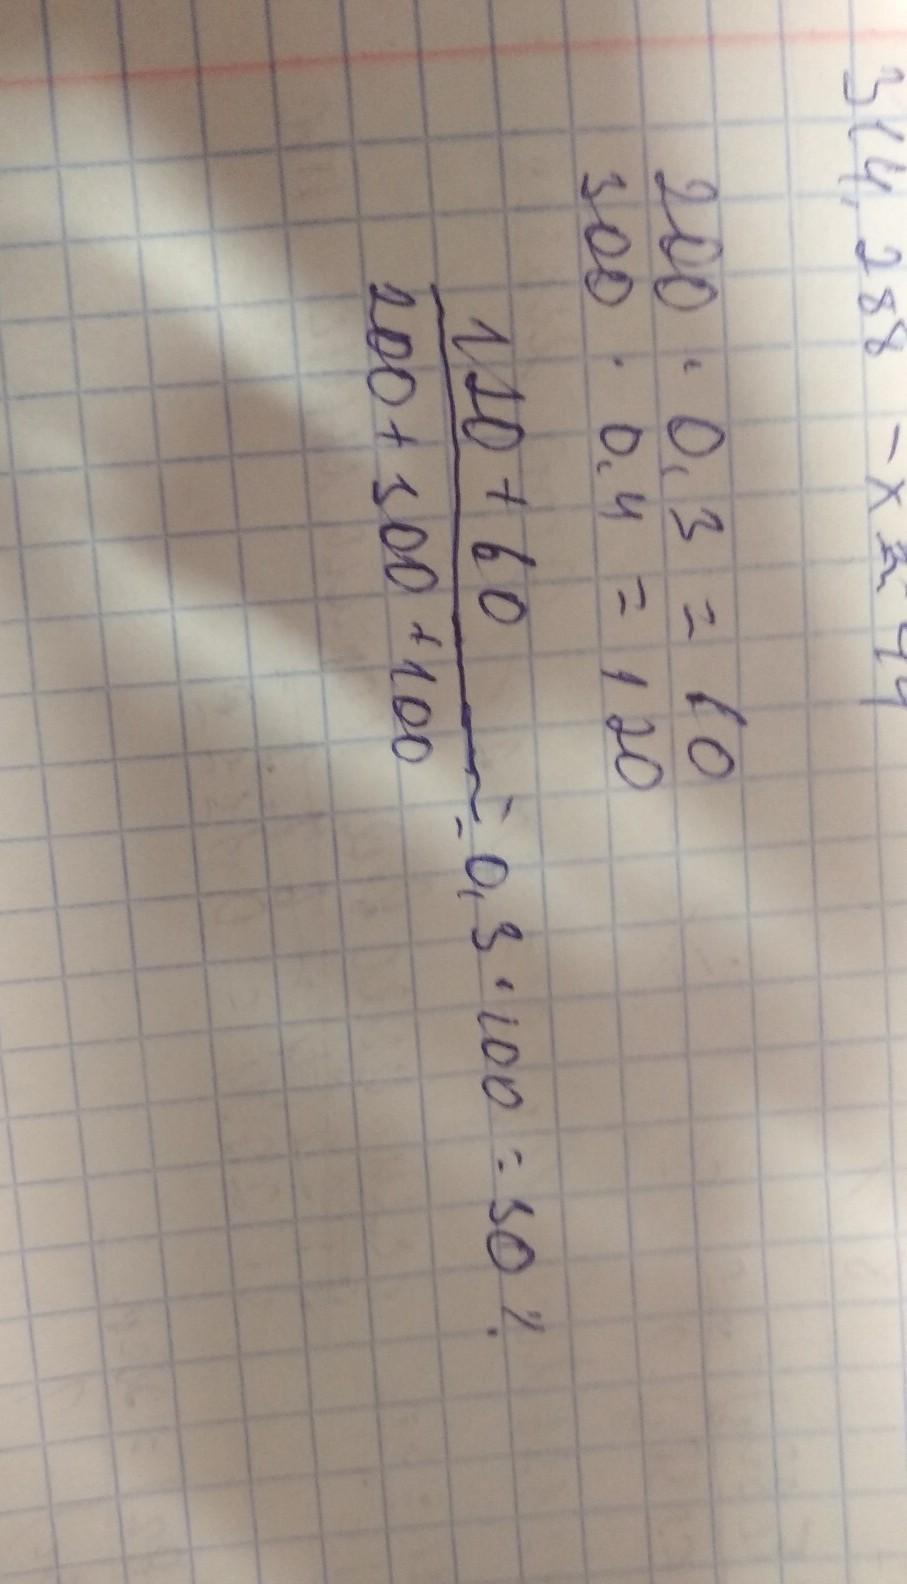 314,288 - x
200 · 0,3 = 60
300 · 0,4 = 120
120 + 60
200 + 300 + 100
= 0,3 · 100 = 30%